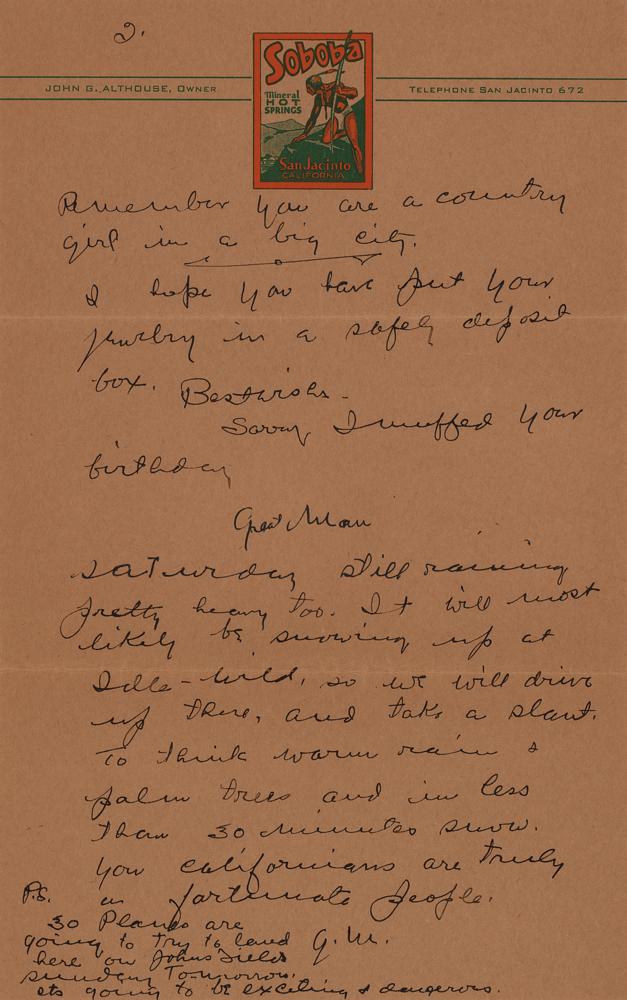 2.
JOHN G. ALTHOUSE, OWNER
Soboba
Mineral
HOT
SPRINGS
San Jacinto
CALIFORNIA
TELEPHONE SAN JACINTO 672
Remember you are a country
girl in a big city.
I hope you have put your
jewelry in a safety deposit
box. Best wishes.
Sorry I muffed your
birthday
Great Man
Saturday still raining
pretty heavy too. It will most
likely be snowing up at
Idle-wild, so we will drive
up there, and take a slant.
To think warm rain &
palm trees and in less
than 30 minutes snow.
You californians are truly
a fortunate people.
G.M.
P.S.
30 Planes are
going to try to land
here on Johns field
sunday Tomorrow.
its going to be exciting & dangerous.